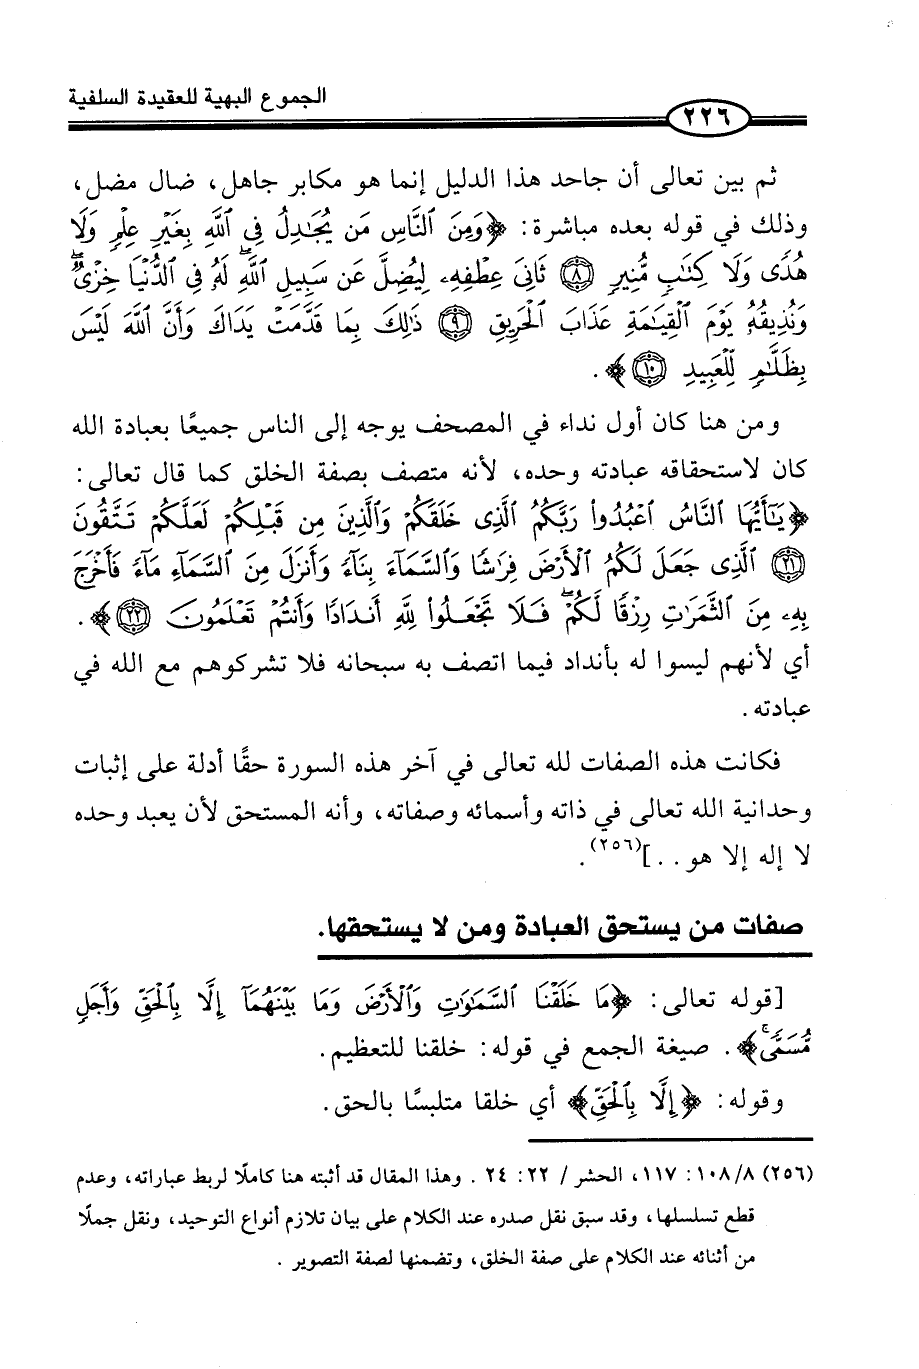 الجموع البهية للعقيدة السلفية
٢٢٦
ثم بين تعالى أن جاحد هذا الدليل إنما هو مكابر جاهل، ضال مضل،
وذلك في قوله بعده مباشرة: ﴿وَمِنَ ٱلنَّاسِ مَن يُجَٰدِلُ فِى ٱللَّهِ بِغَيْرِ عِلْمٍ وَلَا
هُدًى وَلَا كِتَٰبٍ مُّنِيرٍ ٨ ثَانِىَ عِطْفِهِۦ لِيُضِلَّ عَن سَبِيلِ ٱللَّهِۖ لَهُۥ فِى ٱلدُّنْيَا خِزْىٌۖ
وَنُذِيقُهُۥ يَوْمَ ٱلْقِيَٰمَةِ عَذَابَ ٱلْحَرِيقِ ٩ ذَٰلِكَ بِمَا قَدَّمَتْ يَدَاكَ وَأَنَّ ٱللَّهَ لَيْسَ
بِظَلَّٰمٍ لِّلْعَبِيدِ ١٠﴾.
ومن هنا كان أول نداء في المصحف يوجه إلى الناس جميعًا بعبادة الله
كان لاستحقاقه عبادته وحده، لأنه متصف بصفة الخلق كما قال تعالى:
﴿يَٰٓأَيُّهَا ٱلنَّاسُ ٱعْبُدُوا۟ رَبَّكُمُ ٱلَّذِى خَلَقَكُمْ وَٱلَّذِينَ مِن قَبْلِكُمْ لَعَلَّكُمْ تَتَّقُونَ
٢١ ٱلَّذِى جَعَلَ لَكُمُ ٱلْأَرْضَ فِرَٰشًا وَٱلسَّمَآءَ بِنَآءً وَأَنزَلَ مِنَ ٱلسَّمَآءِ مَآءً فَأَخْرَجَ
بِهِۦ مِنَ ٱلثَّمَرَٰتِ رِزْقًا لَّكُمْۖ فَلَا تَجْعَلُوا۟ لِلَّهِ أَندَادًا وَأَنتُمْ تَعْلَمُونَ ٢٢﴾.
أي لأنهم ليسوا له بأنداد فيما اتصف به سبحانه فلا تشركوهم مع الله في
عبادته.
فكانت هذه الصفات لله تعالى في آخر هذه السورة حقًا أدلة على إثبات
وحدانية الله تعالى في ذاته وأسمائه وصفاته، وأنه المستحق لأن يعبد وحده
لا إله إلا هو..](٢٥٦).
صفات من يستحق العبادة ومن لا يستحقها.
[قوله تعالى: ﴿مَا خَلَقْنَا ٱلسَّمَٰوَٰتِ وَٱلْأَرْضَ وَمَا بَيْنَهُمَآ إِلَّا بِٱلْحَقِّ وَأَجَلٍ
مُّسَمًّىۚ﴾. صيغة الجمع في قوله: خلقنا للتعظيم.
وقوله: ﴿إِلَّا بِٱلْحَقِّ﴾ أي خلقا متلبسًا بالحق.
(٢٥٦) ١٠٨/٨: ١١٧، الحشر / ٢٢: ٢٤. وهذا المقال قد أثبته هنا كاملًا لربط عباراته، وعدم
قطع تسلسلها، وقد سبق نقل صدره عند الكلام على بيان تلازم أنواع التوحيد، ونقل جملًا
من أثنائه عند الكلام على صفة الخلق، وتضمنها لصفة التصوير.